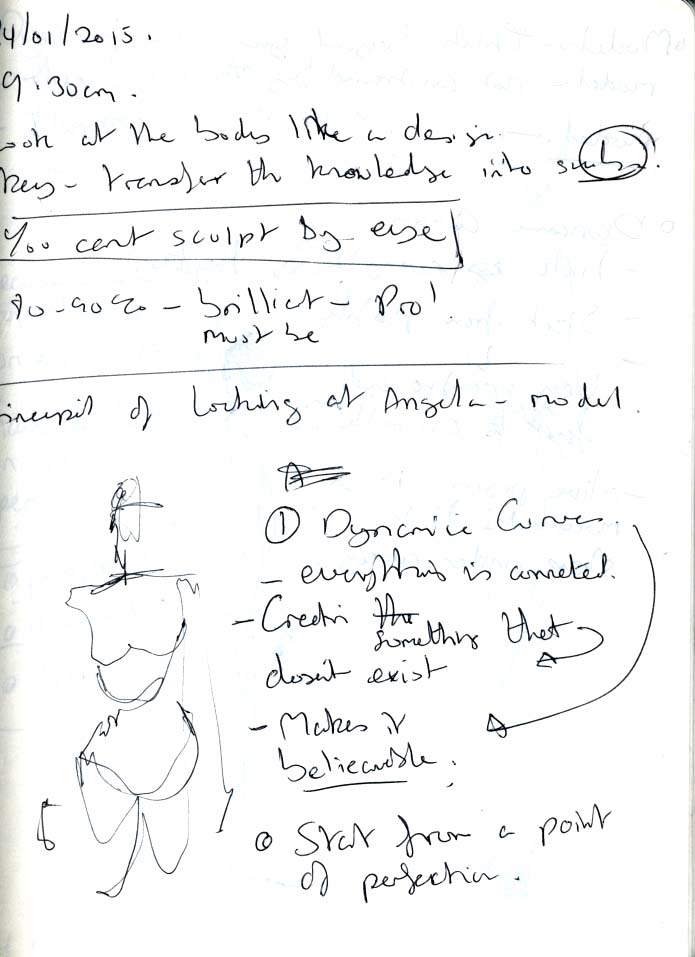 4/01/2015.
9.30am.
ook at the body like a design.
key - transfer the knowledge into
You cant sculpt by eye
80-90% - brillict - Pro'.
must be
incipil of looking at Angela - model.
① Dynamic Curves.
- everything is connected.
- Creatin the
something that
dosent exist
- Makes it
believable.
o Start from a point
of perfection.